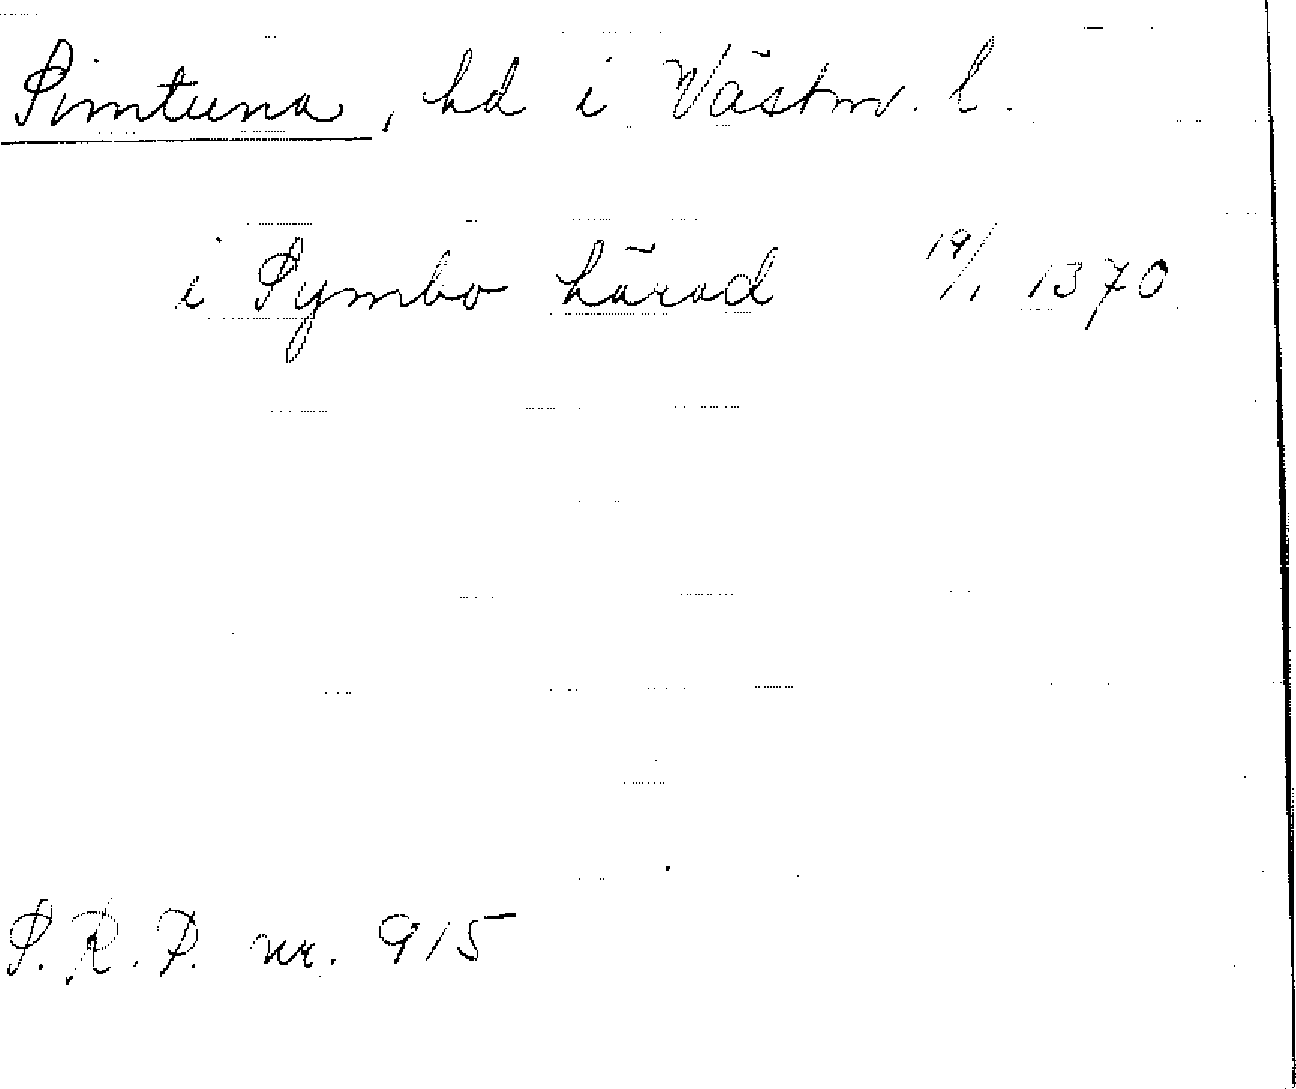 Simtuna, hd i Västm. l.
i Symbo härad 19/1 1370
S.R.P. nr. 915